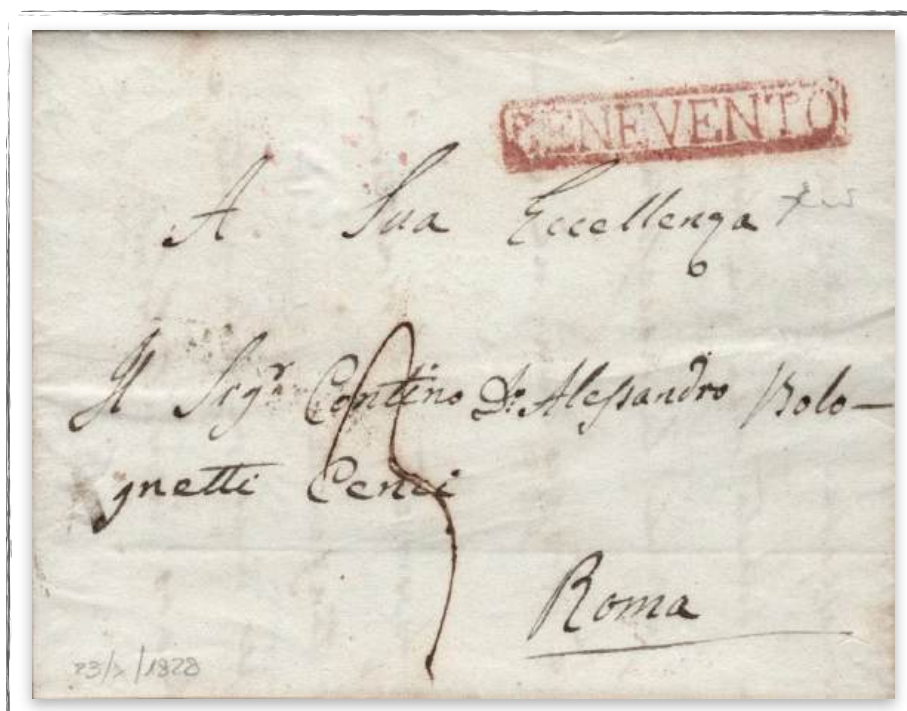 BENEVENTO
A Sua Eccellenza
Il Sigr Contino Dn Alessandro Bolo-
gnetti Cenci
Roma
1828